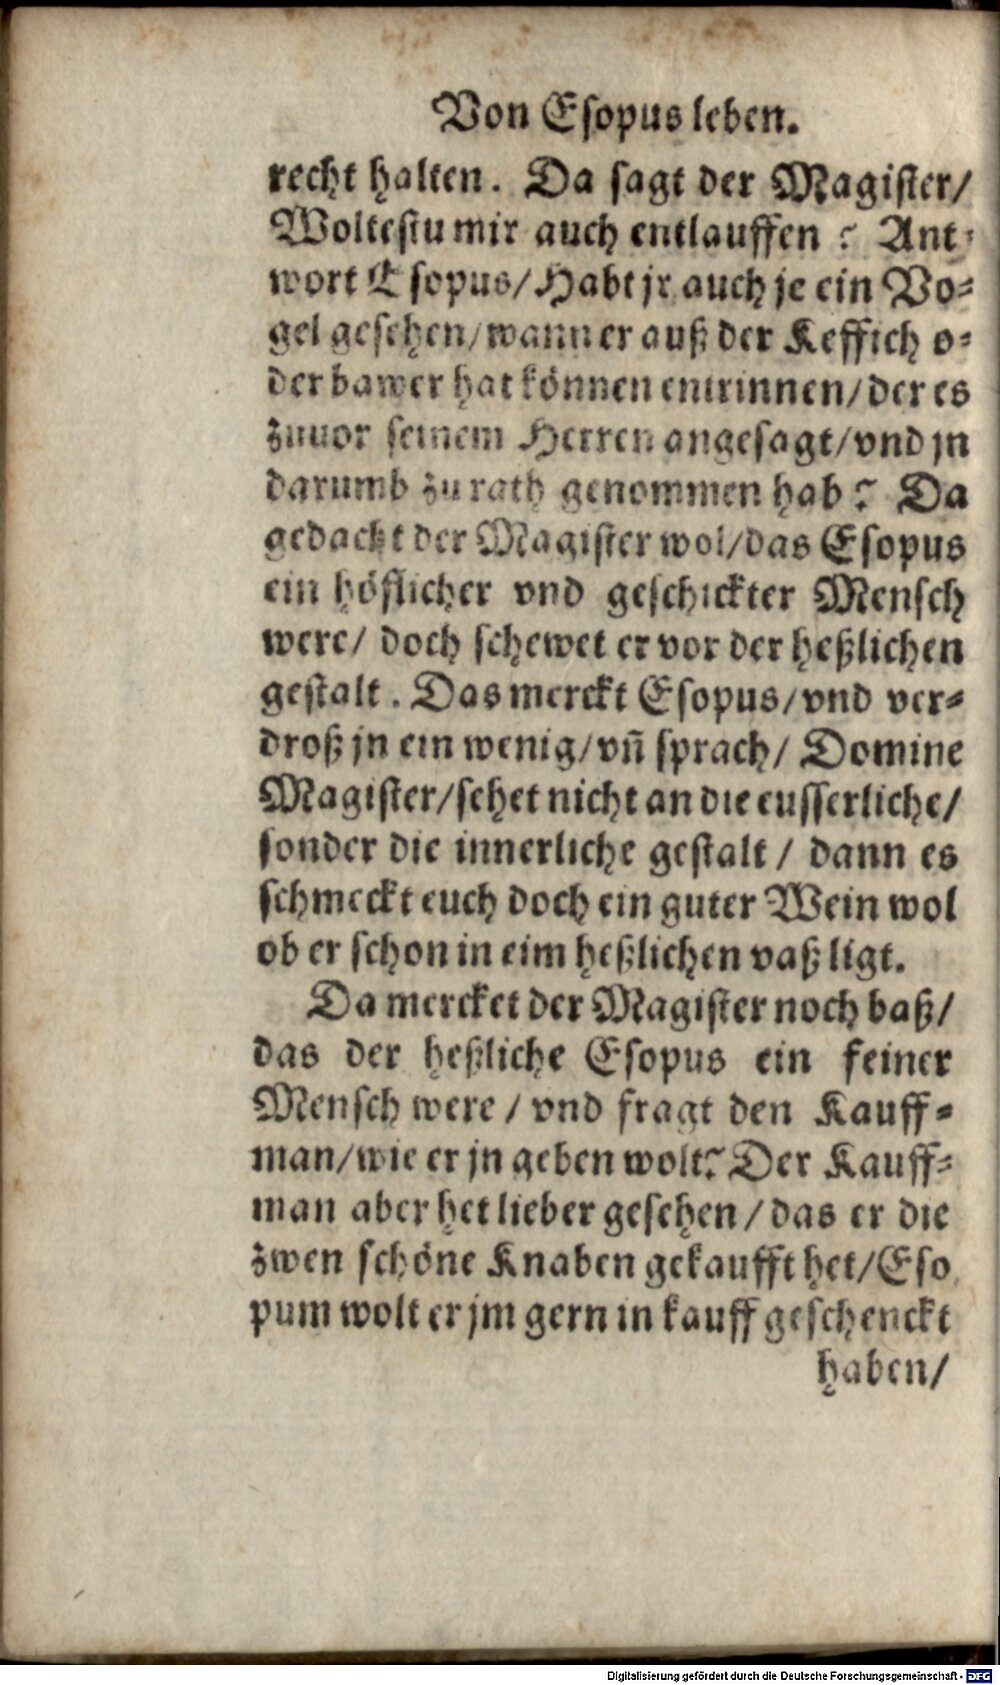 Von Esopus leben.
recht halten. Da sagt der Magister/
Woltestu mir auch entlauffen? Ant-
wort Esopus/Habt jr auch je ein Vo-
gel gesehen/wann er auß der Keffich o-
der bawer hat können entrinnen/der es
zuuor seinem Herren angesagt/vnd jn
darumb zu rath genommen hab? Da
gedacht der Magister wol/das Esopus
ein höflicher vnd geschickter Mensch
were/ doch schewet er vor der heßlichen
gestalt. Das merckt Esopus/vnd ver-
droß jn ein wenig/vñ sprach/ Domine
Magister/sehet nicht an die eusserliche/
sonder die innerliche gestalt/ dann es
schmeckt euch doch ein guter Wein wol
ob er schon in eim heßlichen vaß ligt.
Da mercket der Magister noch baß/
das der heßliche Esopus ein feiner
Mensch were/ vnd fragt den Kauff-
man/wie er jn geben wolt? Der Kauff-
man aber het lieber gesehen/das er die
zwen schöne Knaben gekaufft het/Eso
pum wolt er jm gern in kauff geschenckt
haben/
Digitalisierung gefördert durch die Deutsche Forschungsgemeinschaft - DFG